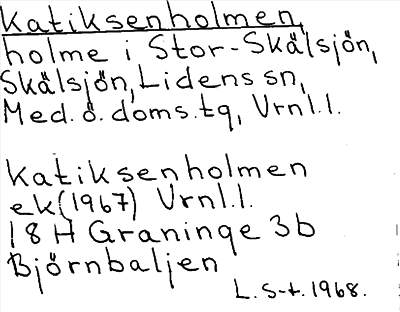 Katiksenholmen,
holme i Stor-Skälsjön,
Skälsjön, Lidens sn,
Med. ö. doms.tg, Vrnl.l.
Katiksenholmen
ek(1967) Vrnl.l.
18 H Graninge 3b
Björnbaljen
L. S-t. 1968.